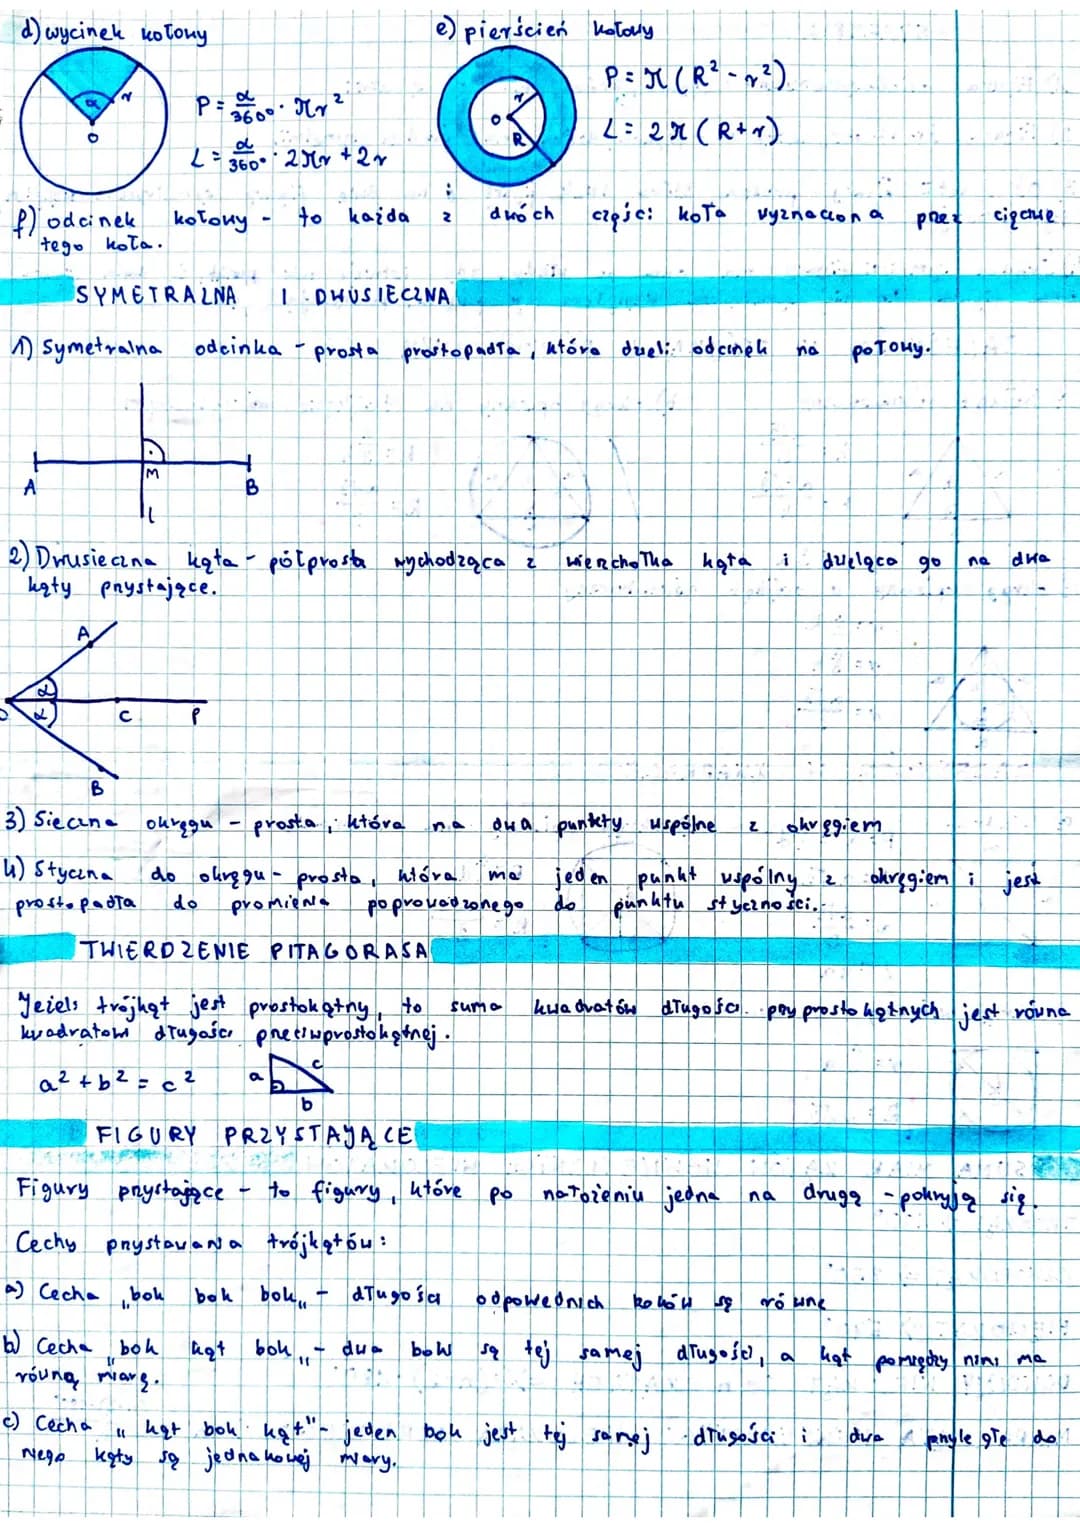 d) wycinek kołowy
e) pierścień kołowy
α r
O
P = α/360° · πr²
L = α/360° · 2πr + 2r
r
O
R
P = π (R² - r²)
L = 2π (R + r)
f) odcinek kołowy - to każda z dwóch części koła wyznaczona przez cięciwę
tego koła.
SYMETRALNA I DWUSIECZNA
1) Symetralna odcinka - prosta prostopadła, która dzieli odcinek na połowy.
A M B
l
2) Dwusieczna kąta - półprosta wychodząca z wierzchołka kąta i dzieląca go na dwa
kąty przystające.
A
α
α
O C P
B
3) Sieczna okręgu - prosta, która na dwa punkty wspólne z okręgiem
4) Styczna do okręgu - prosta, która ma jeden punkt wspólny z okręgiem i jest
prostopadła do promienia poprowadzonego do punktu styczności.
TWIERDZENIE PITAGORASA
Jeżeli trójkąt jest prostokątny, to suma kwadratów długości przyprostokątnych jest równa
kwadratowi długości przeciwprostokątnej.
a² + b² = c²
a c
b
FIGURY PRZYSTAJĄCE
Figury przystające - to figury, które po nałożeniu jedna na drugą - pokryją się.
Cechy przystawania trójkątów:
a) Cecha „bok bok bok„ - długości odpowednich boków są równe
b) Cecha „bok kąt bok„ - dwa boki są tej samej długości, a kąt pomiędzy nimi ma
równą miarę.
c) Cecha „kąt bok kąt" - jeden bok jest tej samej długości i dwa przyległe do
niego kąty są jednakowej miary.